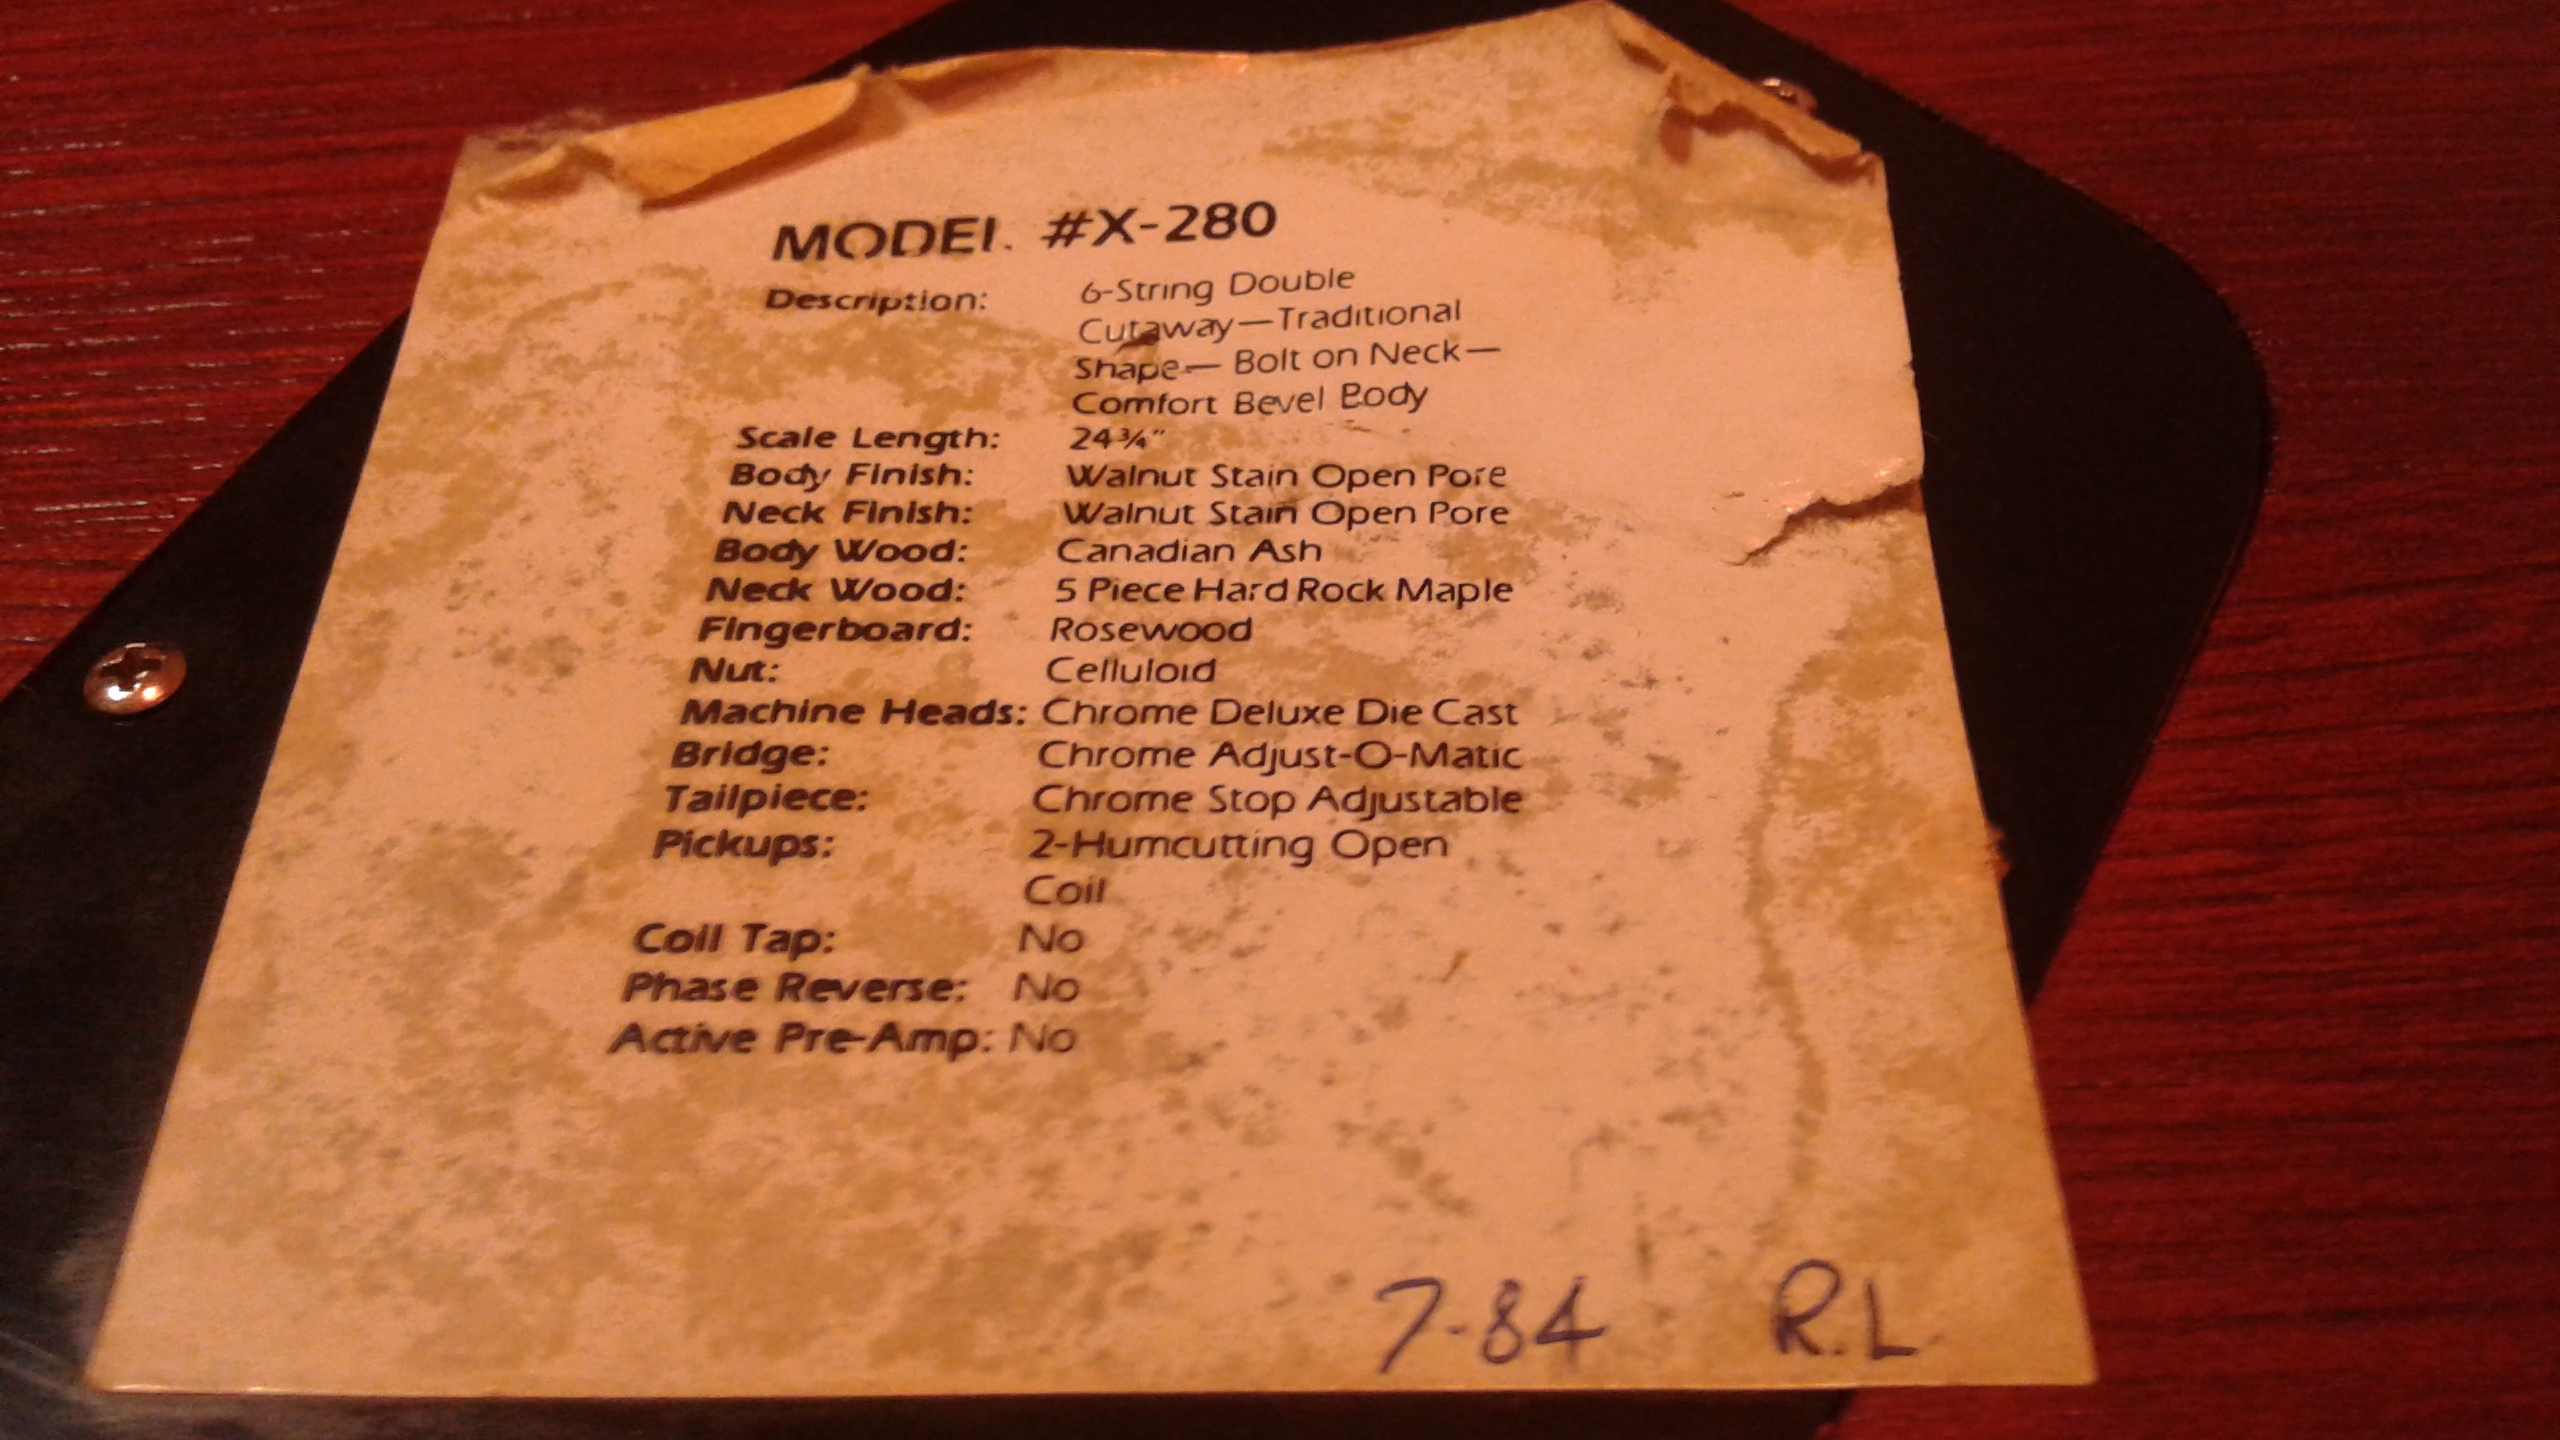 MODEL #X-280
Description: 6-String Double
Cutaway—Traditional
Shape— Bolt on Neck—
Comfort Bevel Body
Scale Length: 24¾"
Body Finish: Walnut Stain Open Pore
Neck Finish: Walnut Stain Open Pore
Body Wood: Canadian Ash
Neck Wood: 5 Piece Hard Rock Maple
Fingerboard: Rosewood
Nut: Celluloid
Machine Heads: Chrome Deluxe Die Cast
Bridge: Chrome Adjust-O-Matic
Tailpiece: Chrome Stop Adjustable
Pickups: 2-Humcutting Open
Coil
Coil Tap: No
Phase Reverse: No
Active Pre-Amp: No
7-84 R.L.